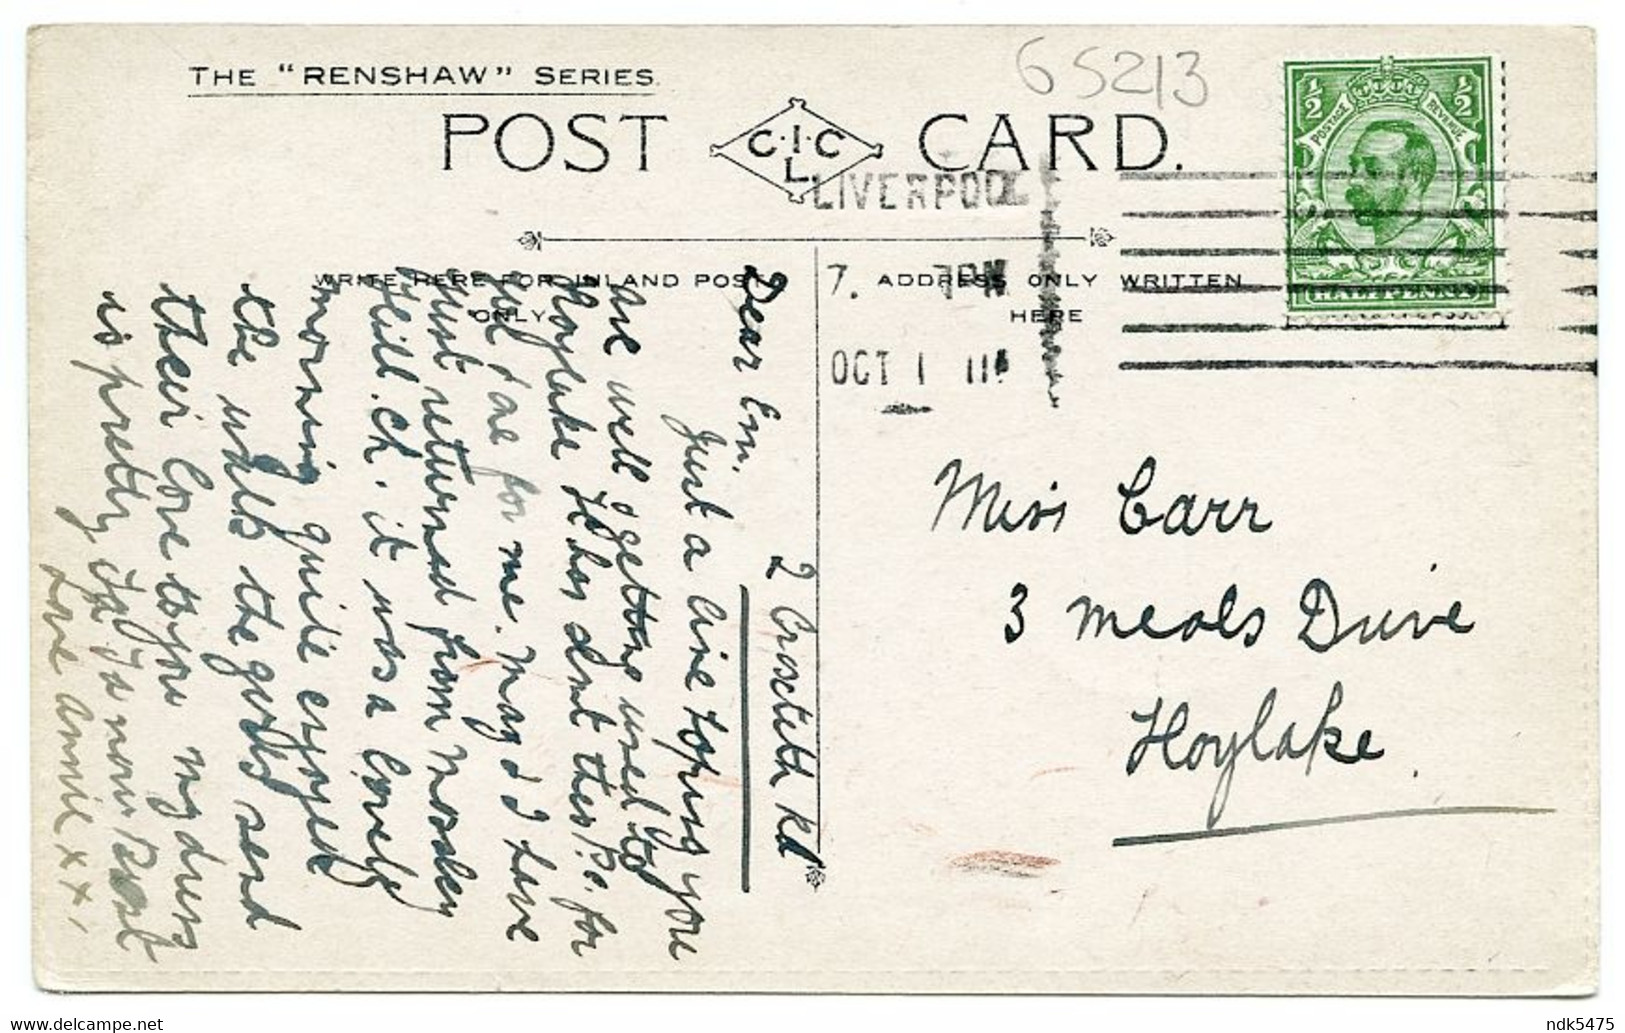 THE "RENSHAW" SERIES.
65213
POST CARD.
C.I.C
L.
LIVERPOOL
7. 7 PM
OCT 1 11
1/2 1/2
POSTAGE REVENUE
HALFPENNY
WRITE HERE FOR INLAND POST
ONLY
ADDRESS ONLY WRITTEN
HERE
2 Croxteth Rd
Dear Em.
Just a line hoping you
are well & getting used to
Hoylake. He has sent these Pc. for
you & one for me. May & I have
just returned from Mossley
Hill Ch. it was a lovely
morning quite enjoyed
the walk the girls send
their love to you my dress
is pretty
Love Annie x x x
Miss Carr
3 Meols Drive
Hoylake.
ndk5475